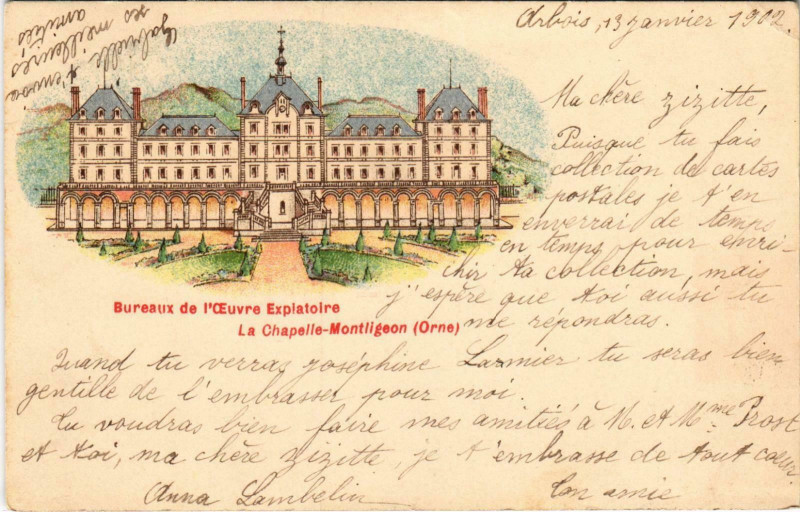 Arbois, 13 janvier 1902.
Gabrielle t'envoie
ses meilleures
amitiés
Ma chère zizitte,
Puisque tu fais
collection de cartes
postales je t'en
enverrai de temps
en temps pour enri-
chir ta collection, mais
j'espère que toi aussi tu
me répondras.
Bureaux de l'Œuvre Expiatoire
La Chapelle-Montligeon (Orne)
Quand tu verras joséphine Larmier tu seras bien
gentille de l'embrasser pour moi.
Tu voudras bien faire mes amitiés à M. et Mme Prost
et toi, ma chère zizitte, je t'embrasse de tout cœur.
Ton amie
Anna Lambelin